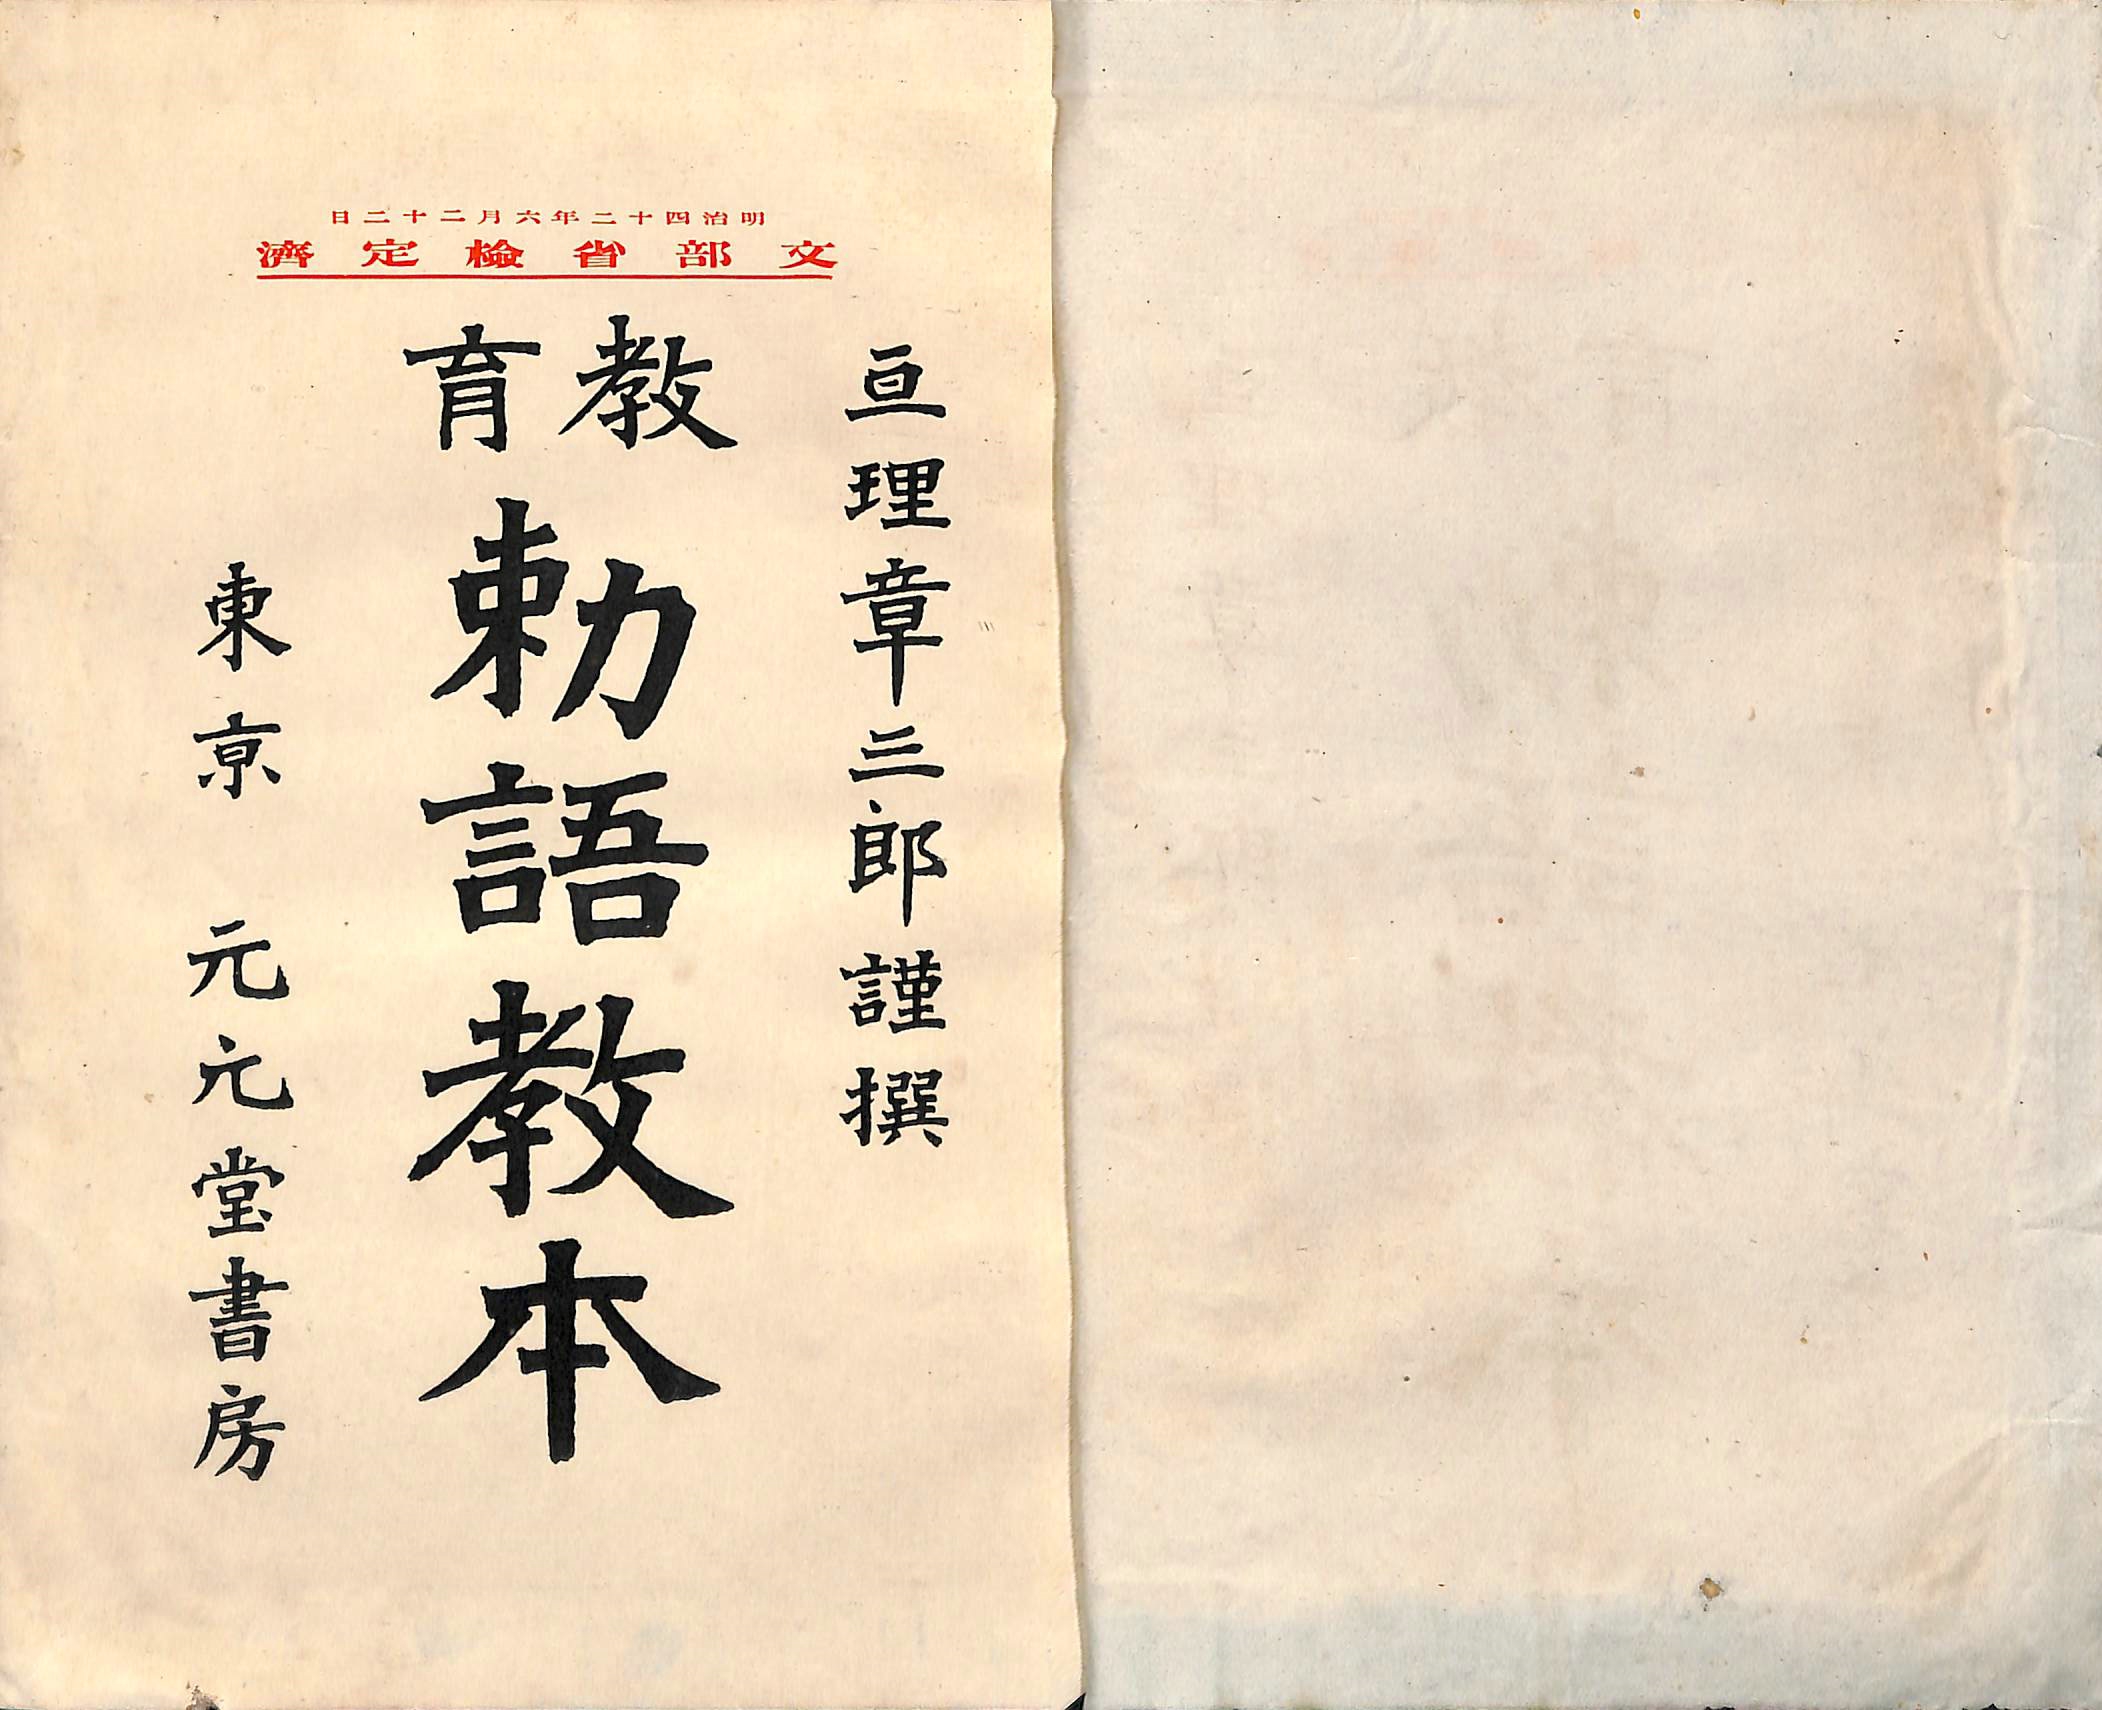 明治四十二年六月二十二日
文部省檢定濟
亘理章三郎謹撰
教育
勅語教本
東京 元元堂書房